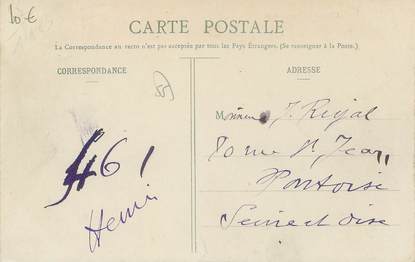 10€
CARTE POSTALE
La Correspondance au recto n'est pas acceptée par tous les Pays Étrangers. (Se renseigner à la Poste.)
CORRESPONDANCE
ADRESSE
M
J. Rigal
rue St Jean
Pontoise
Seine et Oise
461
Henri